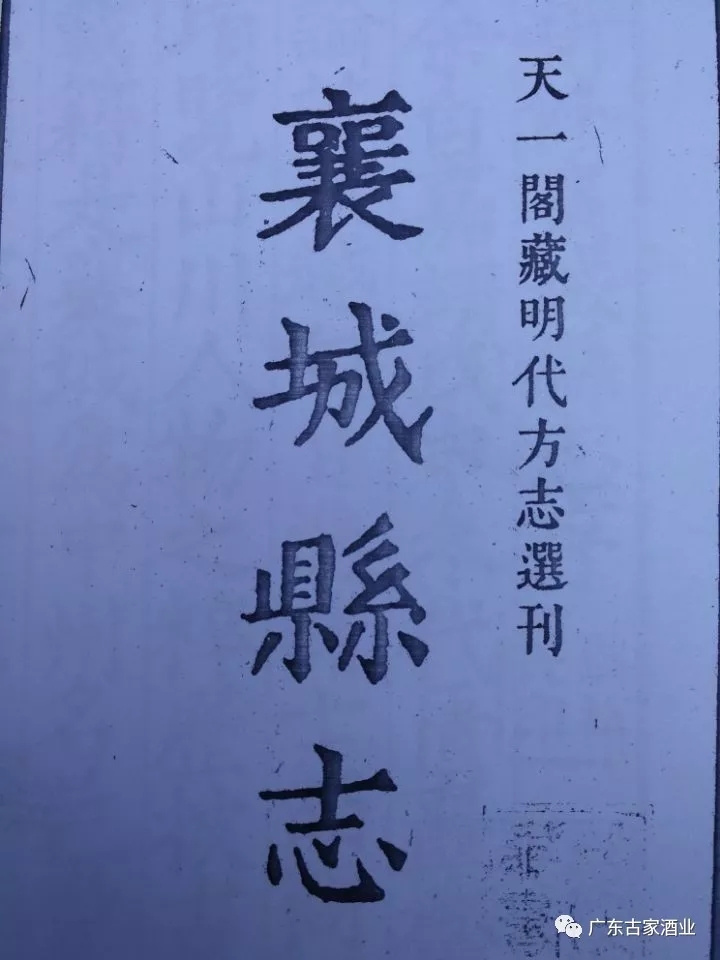 天一閣藏明代方志選刊
襄城縣志
广东古家酒业